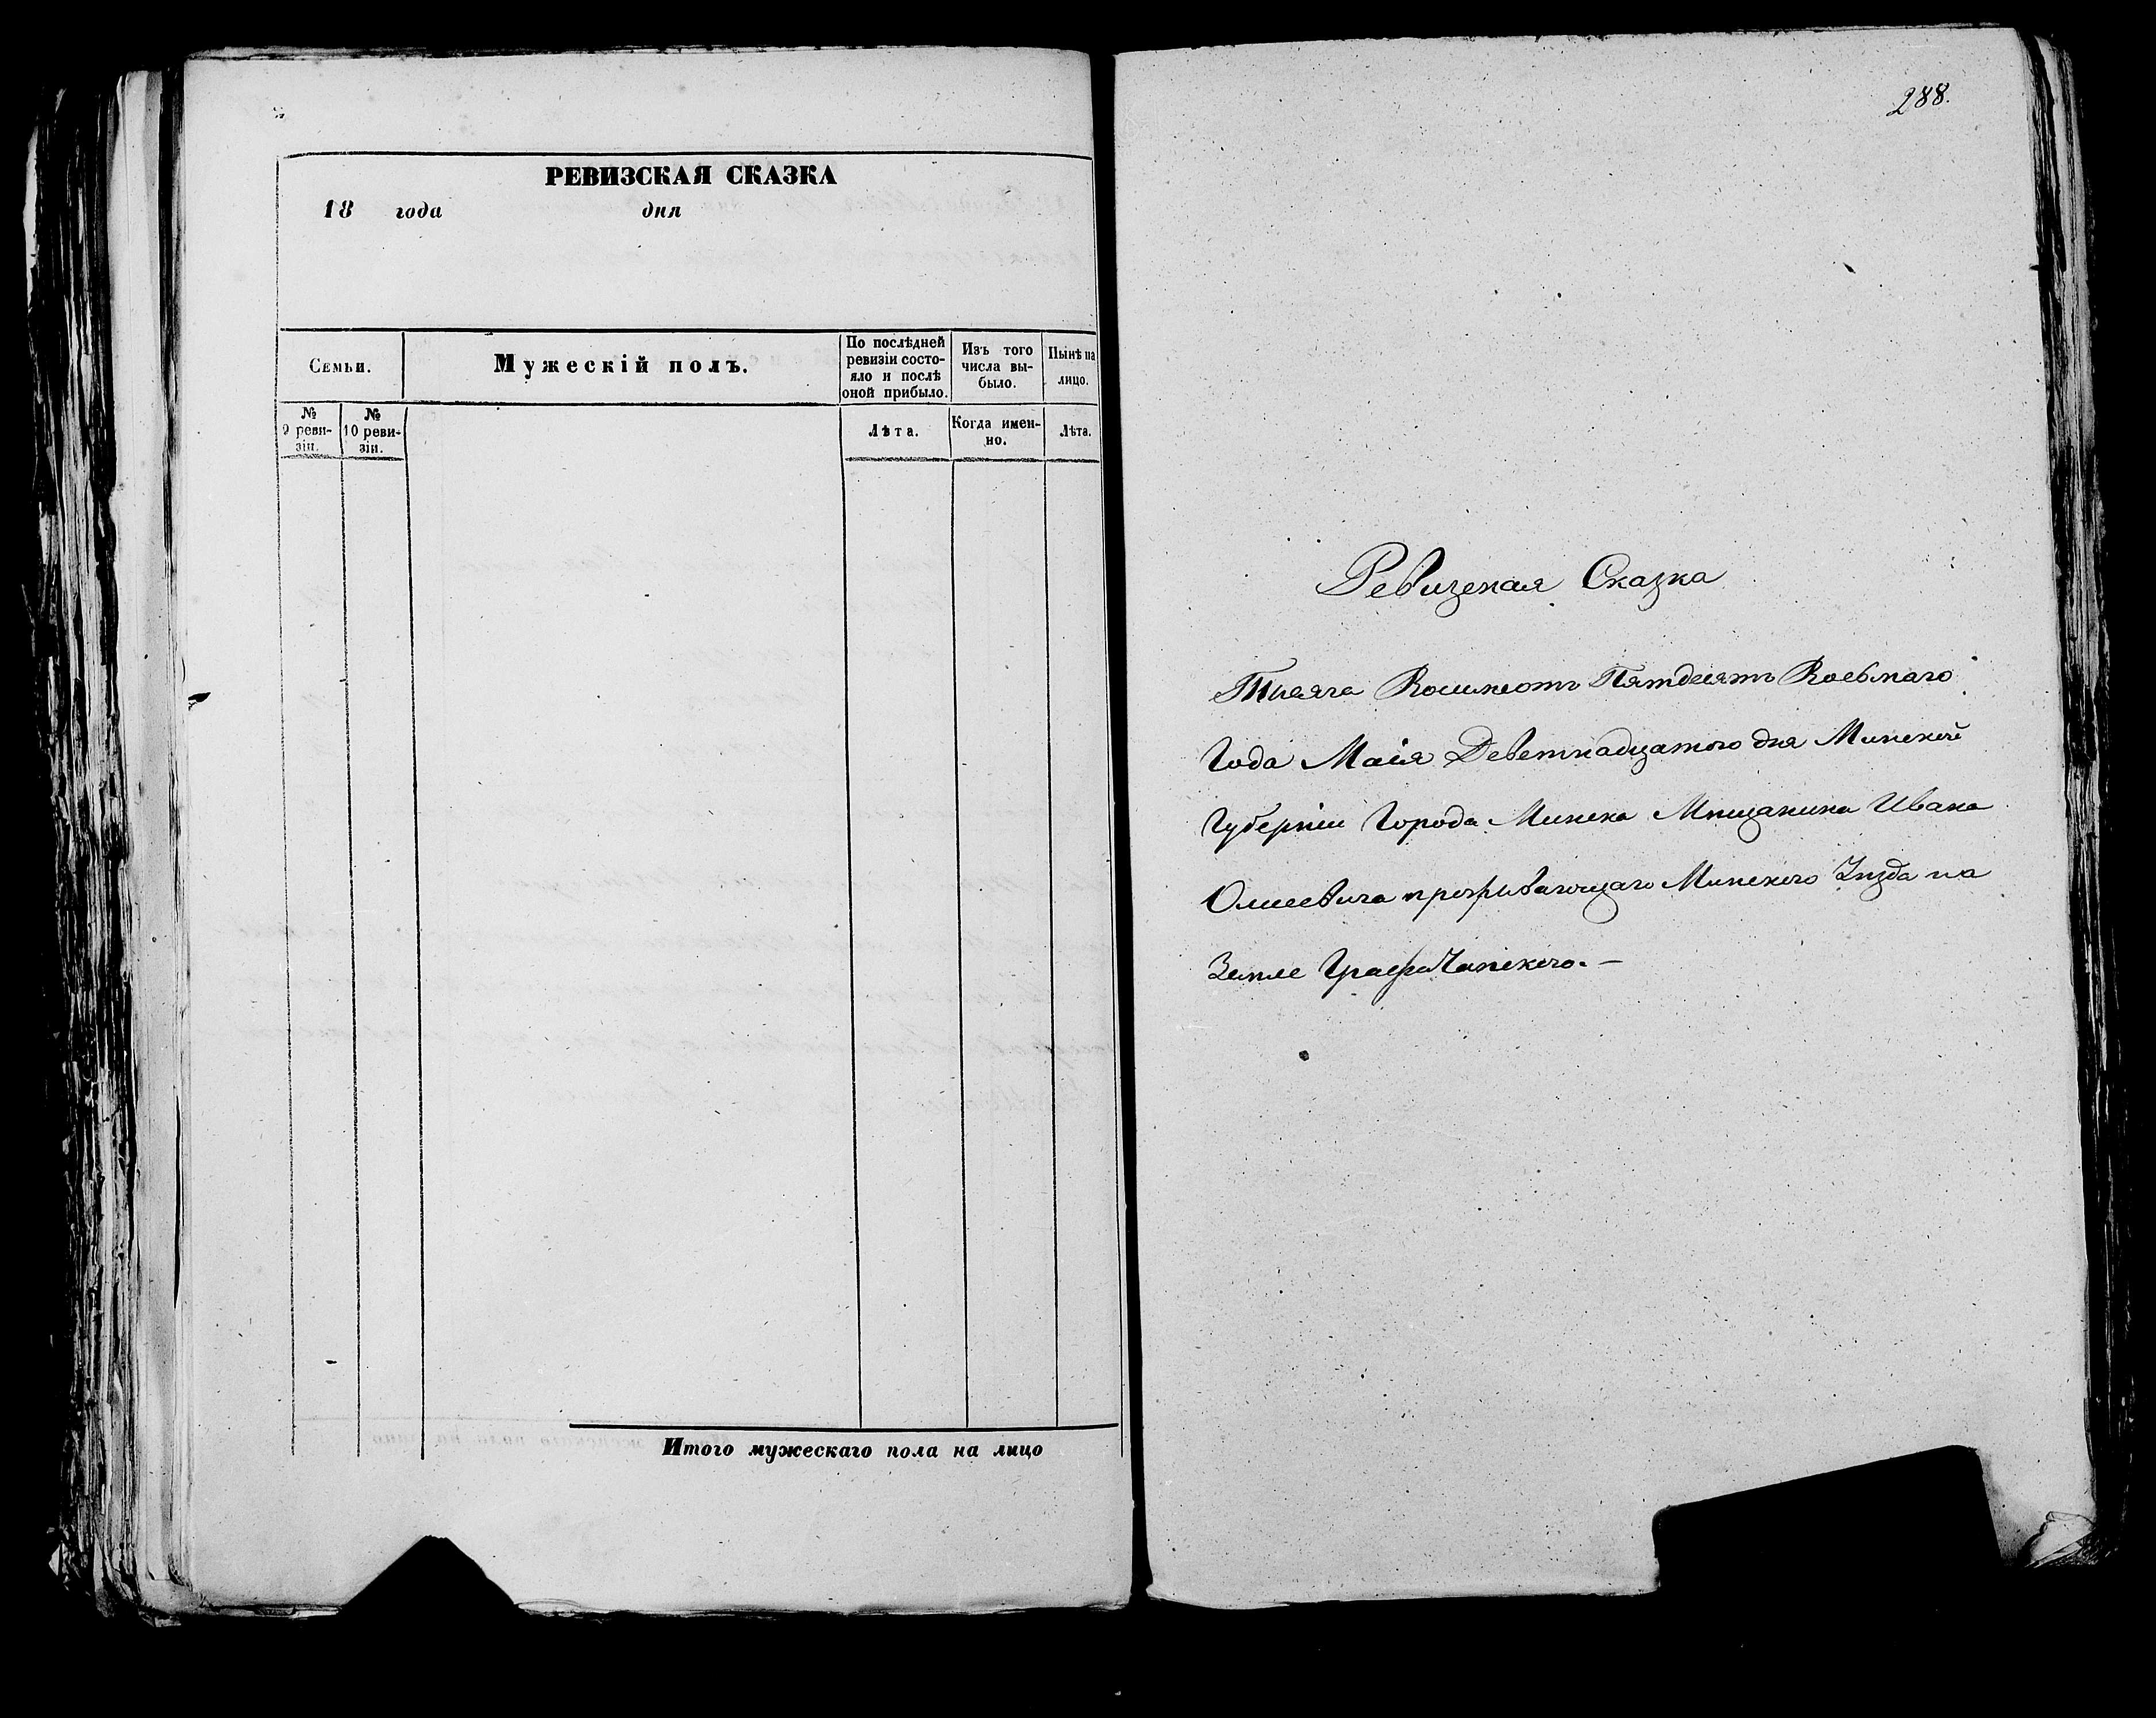 РЕВИЗСКАЯ СКАЗКА
18 года дня
Семьи.
Мужескій полъ.
По послѣдней
ревизіи состо-
яло и послѣ
оной прибыло.
Изъ того
числа вы-
было.
Нынѣ на
лицо.
№
9 реви-
зіи.
№
10 реви-
зіи.
Лѣта.
Когда имен-
но.
Лѣта.
Итого мужескаго пола на лицо
288.
Ревизская Сказка
Тысяча Восимсотъ Пятдесятъ Восьмаго
Года Маія Деветнадцатого дня Минской
Губерніи Города Минска Мещанина Ивана
Олисевича прозживающаго Минского Уезда на
Земле Графа Чапского.—